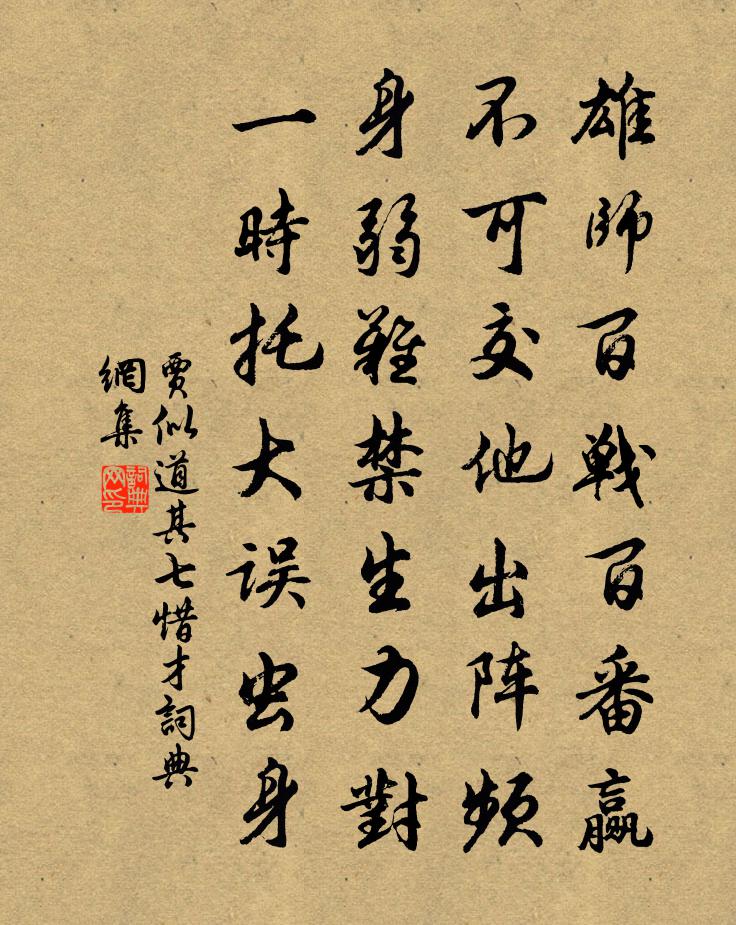 雄師百戦百番贏
不可交他出阵頻
身弱難禁生力對
一時托大误虫身
賈似道其七惜才詞典
網集
詞典
网印